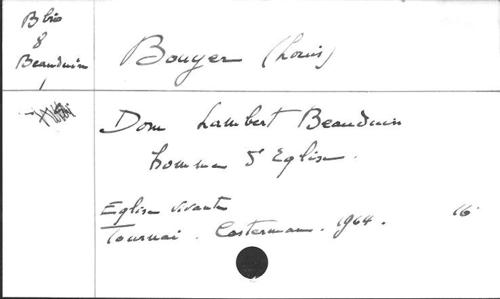 B bis
8
Beauduin
1
Bouyer (Louis)
Dom Lambert Beauduin
homme d'Eglise.
Eglise vivante
Tournai. Casterman. 1964. 16